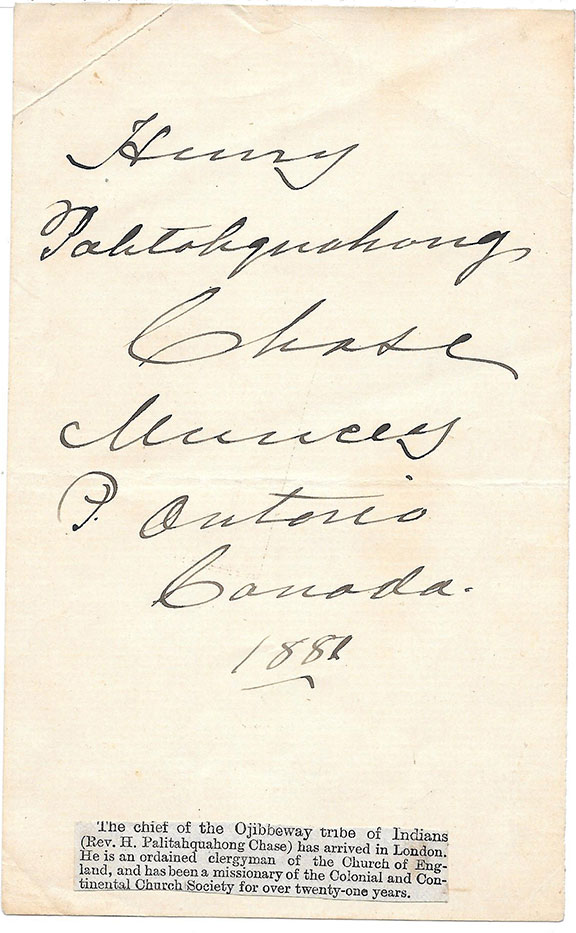 Henry
Pahtahquahong
Chase
Muncey
P. Ontario
Canada.
1881
The chief of the Ojibbeway tribe of Indians
(Rev. H. Palitahquahong Chase) has arrived in London.
He is an ordained clergyman of the Church of Eng-
land, and has been a missionary of the Colonial and Con-
tinental Church Society for over twenty-one years.